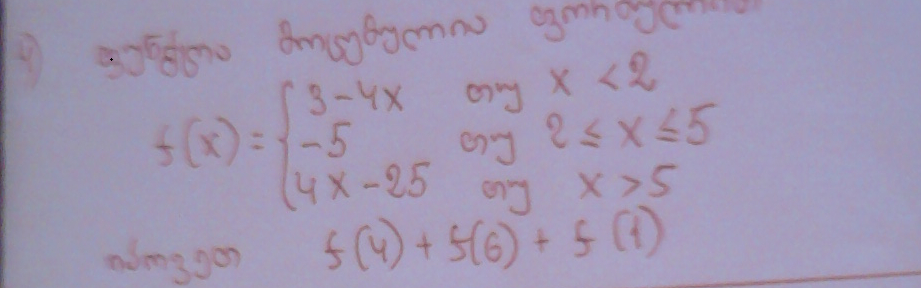 4) ფუნქცია მოცემულია ფორმულით
f(x) = { 3-4x თუ x < 2
-5 თუ 2 ≤ x ≤ 5
4x-25 თუ x > 5
იპოვეთ f(4) + f(6) + f(1)